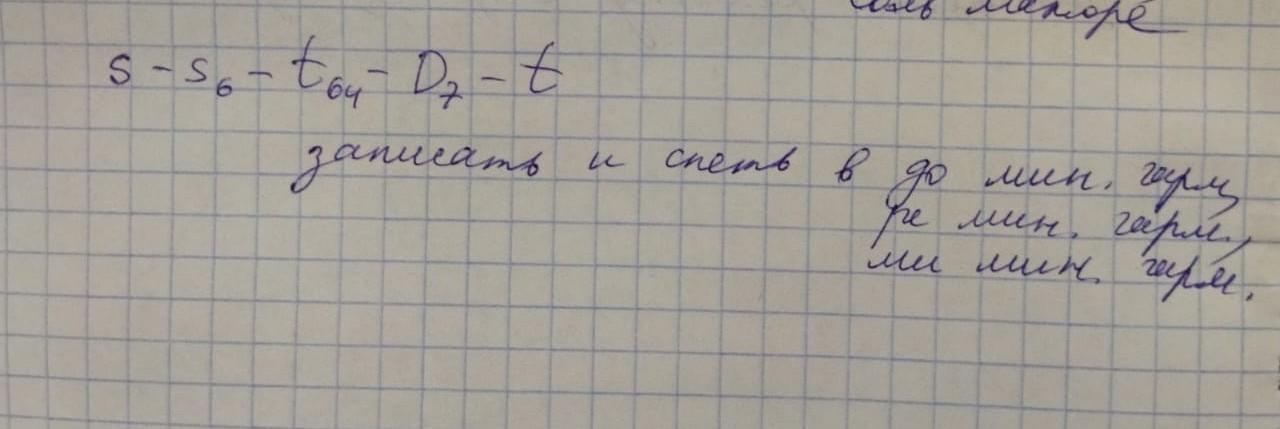 соль мажоре
s - s6 - t64 - D7 - t
записать и спеть в до мин. гарм,
ре мин. гарм.,
ми мин. гарм.